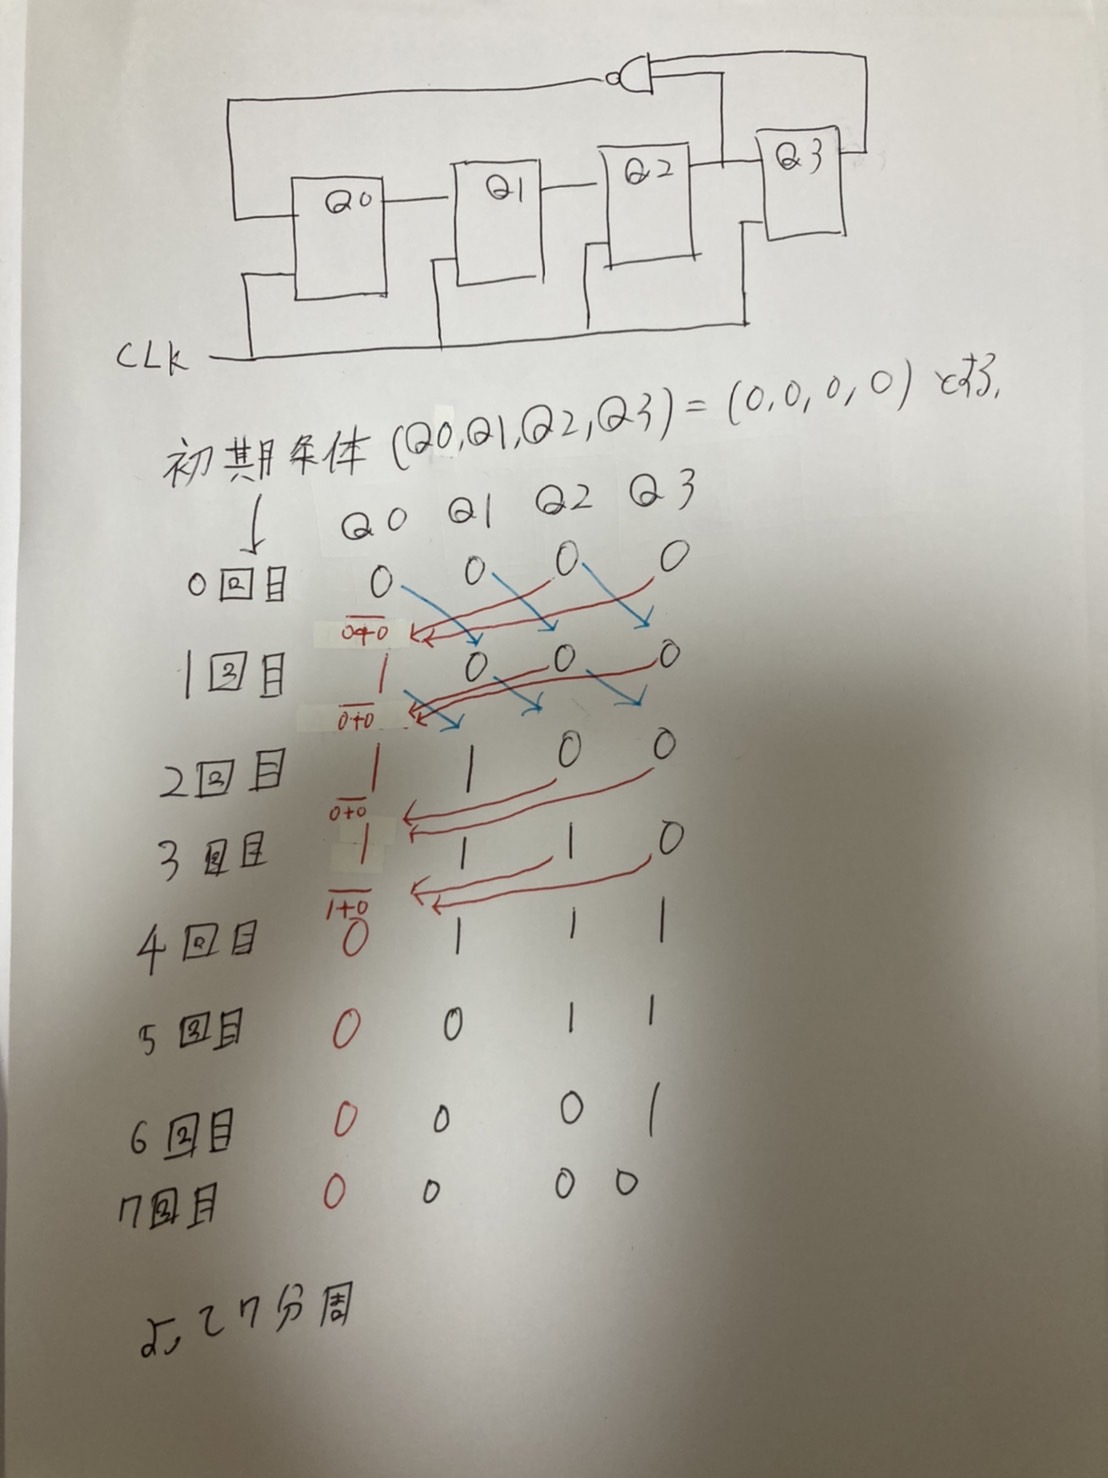 Q0 Q1 Q2 Q3
CLK
初期条体 (Q0,Q1,Q2,Q3)=(0,0,0,0) とする,
Q0 Q1 Q2 Q3
0回目 0 0 0 0
0+0
1回目 1 0 0 0
0+0
2回目 1 1 0 0
0+0
3回目 1 1 1 0
1+0
4回目 0 1 1 1
5回目 0 0 1 1
6回目 0 0 0 1
7回目 0 0 0 0
よって7分周